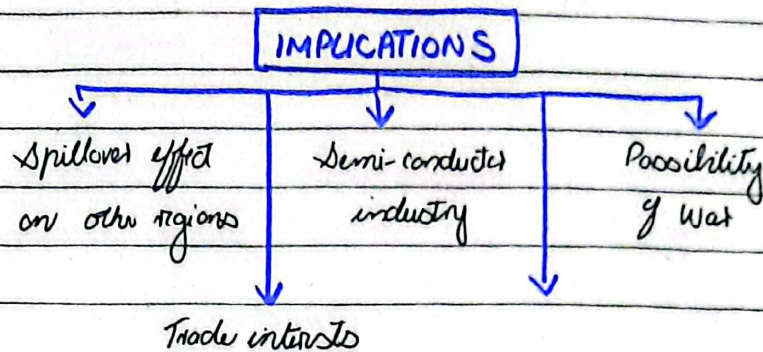 IMPLICATIONS
Spillover effect
on other regions
Semi-conductor
industry
Possibility
of War
Trade interests